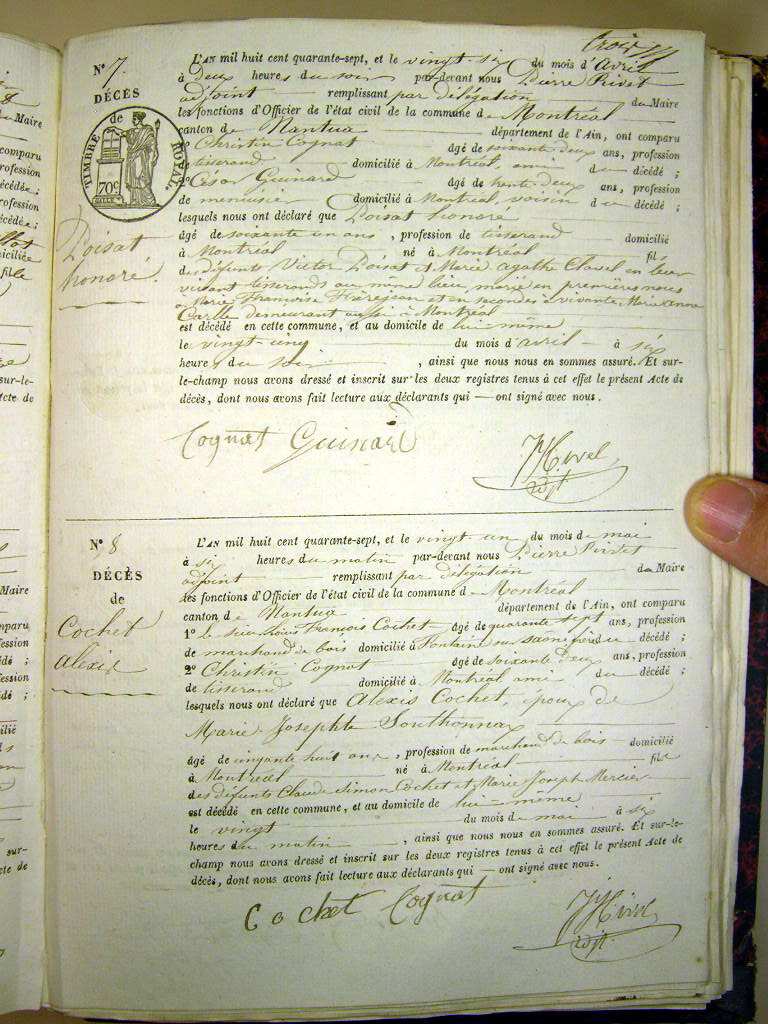 N° 7.
DÉCÈS
TIMBRE de ROYAL.
70c
Poisat
honoré.
L'AN mil huit cent quarante-sept, et le vingt six du mois d'avril
à deux heures du soir par-devant nous Pierre
adjoint remplissant par délégation du Maire
les fonctions d'Officier de l'état civil de la commune de Montréal
canton de Nantua département de l'Ain, ont comparu
1° Christin Cognat âgé de soixante deux ans, profession
tisserand domicilié à Montréal, ami du décédé ;
2° César Guinard âgé de trente deux ans, profession
de menuisier domicilié à Montréal, voisin du décédé ;
lesquels nous ont déclaré que Poisat honoré
âgé de soixante un ans, profession de tisserand domicilié
à Montréal né à Montréal fils
des défunts Victor Poisat et Marie agathe Clavel en leur
vivant tisserands au même lieu, marié en premières noces
à Marie Françoise et en secondes à vivante Marie anne
Carlle demeurant aussi à Montréal
est décédé en cette commune, et au domicile de lui-même
le vingt cinq du mois d'avril à six
heures du soir, ainsi que nous nous en sommes assuré. Et sur-
le-champ nous avons dressé et inscrit sur les deux registres tenus à cet effet le présent Acte de
décès, dont nous avons fait lecture aux déclarants qui — ont signé avec nous.
Cognat Guinard
adjt
N° 8
DÉCÈS
de
Cochet
alexis
L'AN mil huit cent quarante-sept, et le vingt un du mois de mai
à six heures du matin par-devant nous Pierre
adjoint remplissant par délégation du Maire
les fonctions d'Officier de l'état civil de la commune de Montréal
canton de Nantua département de l'Ain, ont comparu
1° le sieur Louis François Cochet âgé de quarante sept ans, profession
de marchand de bois domicilié à Fontaine sur saone frère du décédé ;
2° Christin Cognat âgé de soixante deux ans, profession
de tisserand domicilié à Montréal ami du décédé ;
lesquels nous ont déclaré que Alexis Cochet, époux de
Marie Josephte Southonnax
âgé de cinquante huit ans, profession de marchand de bois domicilié
à Montréal né à Montréal fils
des défunts Claude Simon Cochet et Marie Joseph Mercier
est décédé en cette commune, et au domicile de lui-même
le vingt du mois de mai à six
heures du matin, ainsi que nous nous en sommes assuré. Et sur-le-
champ nous avons dressé et inscrit sur les deux registres tenus à cet effet le présent Acte de
décès, dont nous avons fait lecture aux déclarants qui — ont signé avec nous.
Cochet Cognat
adjt.